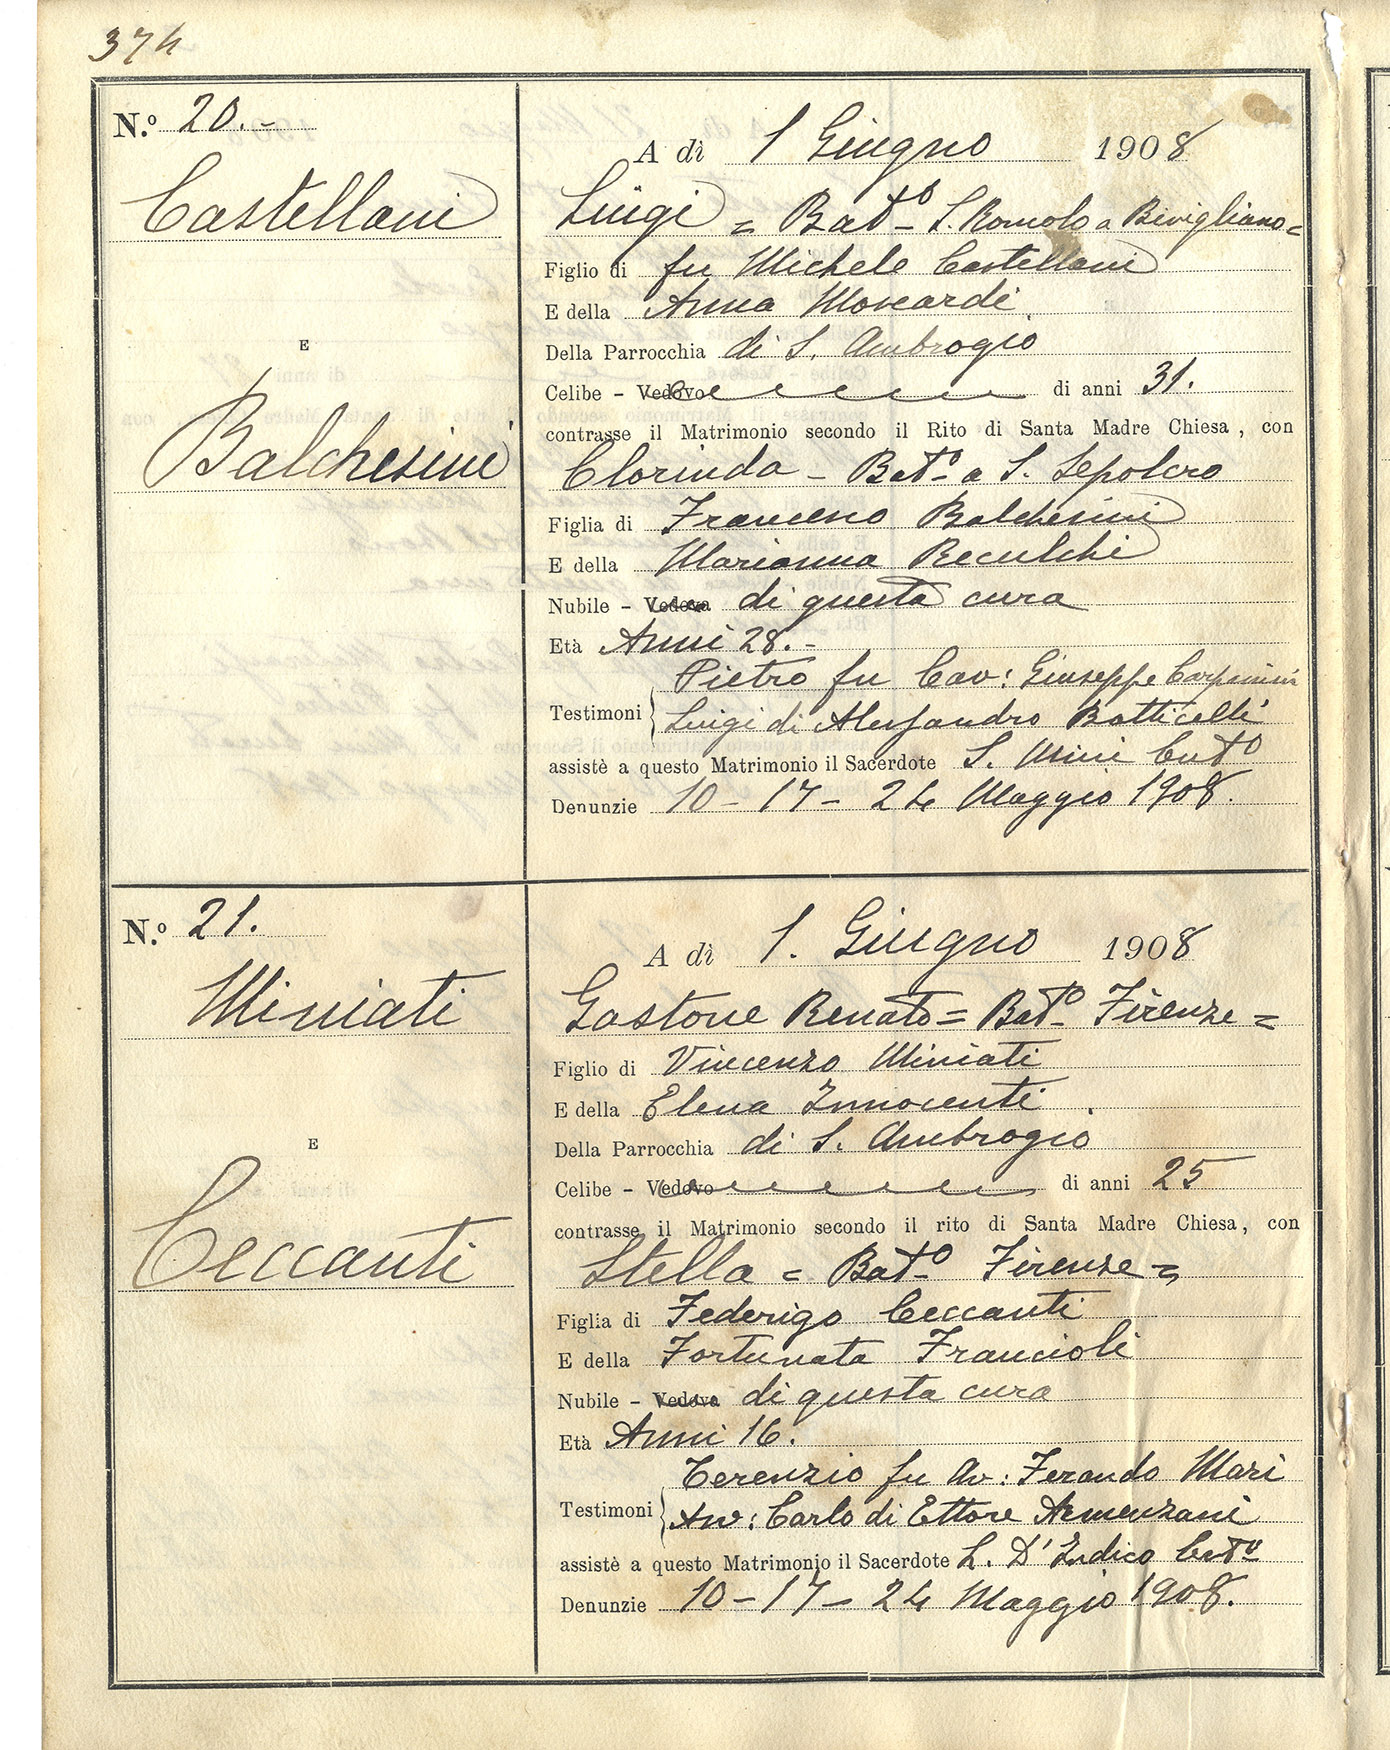 374
N.º 20.-
Castellani
E
Balchesini
A dì 1 Giugno 1908
Luigi = Bat.º S. Romolo a Bivigliano =
Figlio di fu Michele Castellani
E della Anna Moscardi
Della Parrocchia di S. Ambrogio
Celibe - Vedovo di anni 31.
contrasse il Matrimonio secondo il Rito di Santa Madre Chiesa, con
Clorinda - Bat.º a S. Sepolcro
Figlia di Francesco Balchesini
E della Marianna
Nubile - Vedova di questa cura
Età Anni 28.-
Pietro fu Cav: Giuseppe
Testimoni Luigi di Alessandro Botticelli
assistè a questo Matrimonio il Sacerdote S. Mini Cutº
Denunzie 10 - 17 - 24 Maggio 1908.
N.º 21.
Miniati
E
Ceccanti
A dì 1. Giugno 1908
Gastone Renato = Bat.º Firenze =
Figlio di Vincenzo Miniati
E della Elena Innocenti
Della Parrocchia di S. Ambrogio
Celibe - Vedovo di anni 25
contrasse il Matrimonio secondo il rito di Santa Madre Chiesa, con
Stella = Bat.º Firenze =
Figlia di Federigo Ceccanti
E della Fortunata Francioli
Nubile - Vedova di questa cura
Età Anni 16.
Terenzio fu Av: Ferando Mari
Testimoni Avv: Carlo di Ettore Armenzani
assistè a questo Matrimonio il Sacerdote L. D'Indico Cutº
Denunzie 10 - 17 - 24 Maggio 1908.